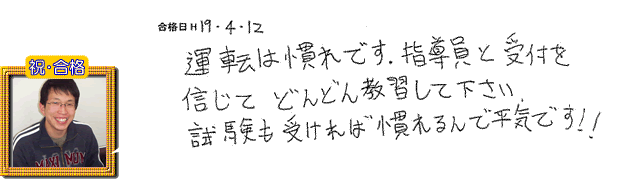 合格日H19・4・12
祝・合格
運転は慣れです.指導員と受付を
信じて どんどん教習して下さい.
試験も受ければ慣れるんで平気です!!